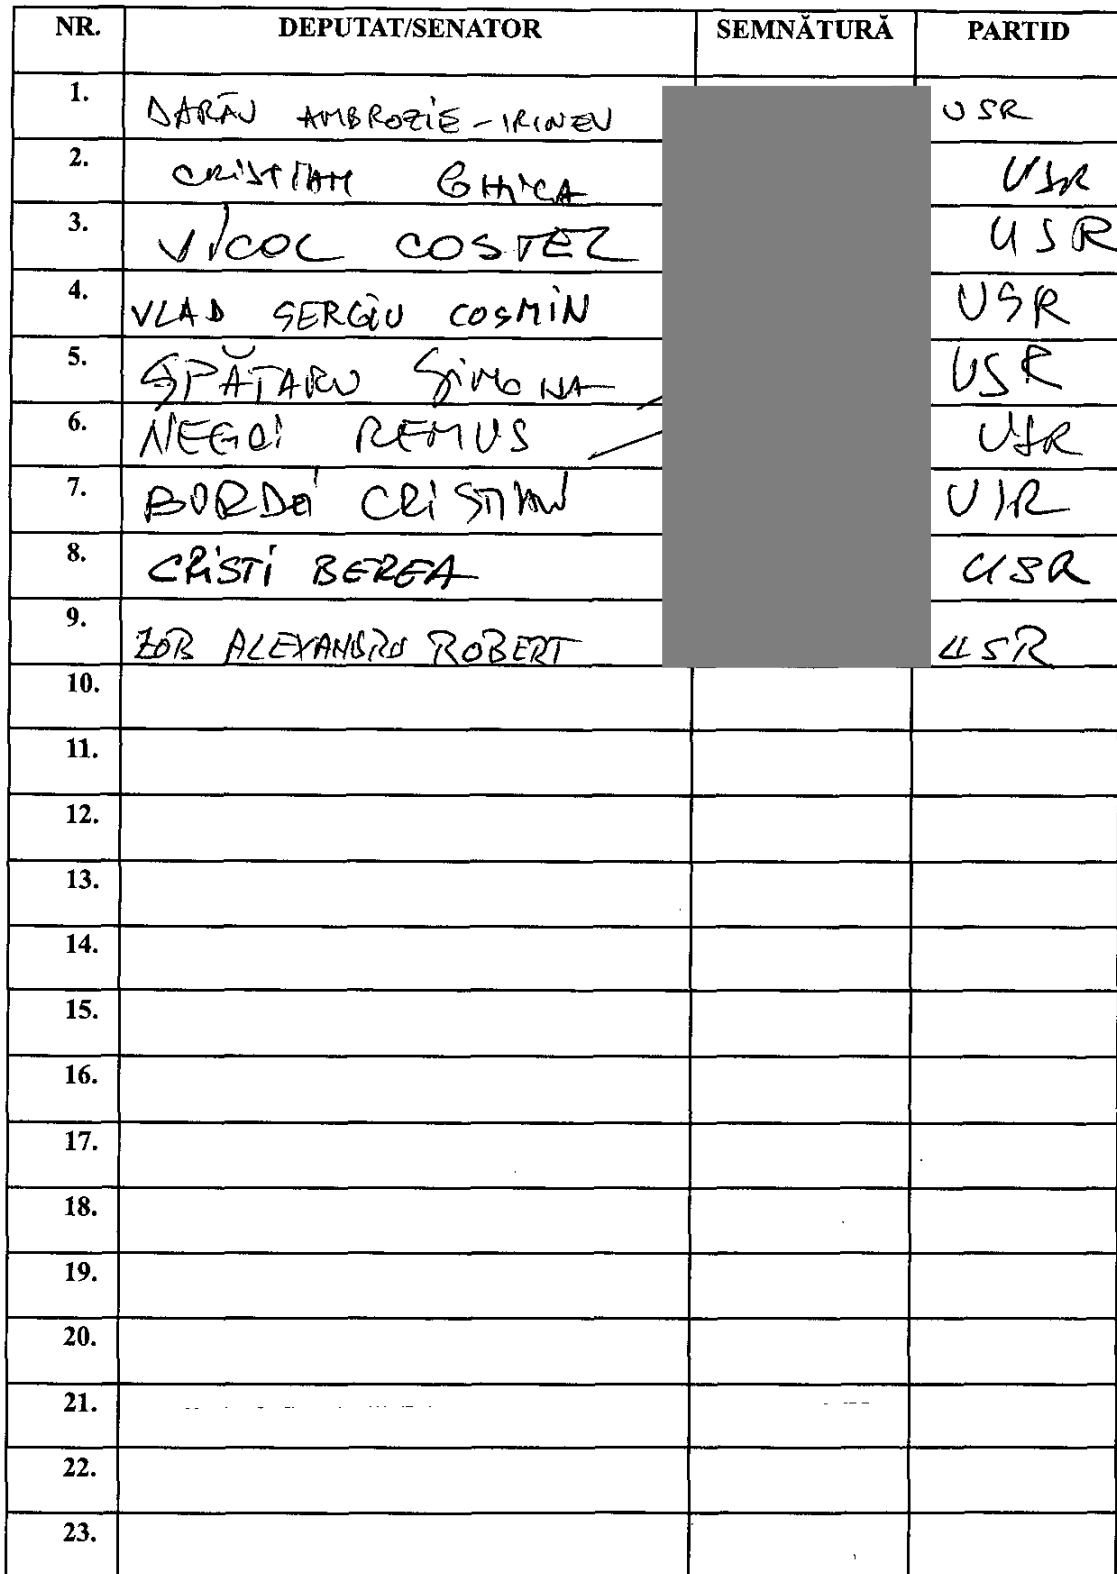 NR. DEPUTAT/SENATOR SEMNĂTURĂ PARTID
1. DARĂU AMBROZIE-IRINEU USR
2. CRISTIAN GHICA USR
3. VICOL COSTEL USR
4. VLAD SERGIU COSMIN USR
5. SPĂTARU SIMONA USR
6. NEGOI REMUS USR
7. BORDEI CRISTIAN USR
8. CRISTI BEREA USR
9. ZOB ALEXANDRU ROBERT USR
10.
11.
12.
13.
14.
15.
16.
17.
18.
19.
20.
21.
22.
23.